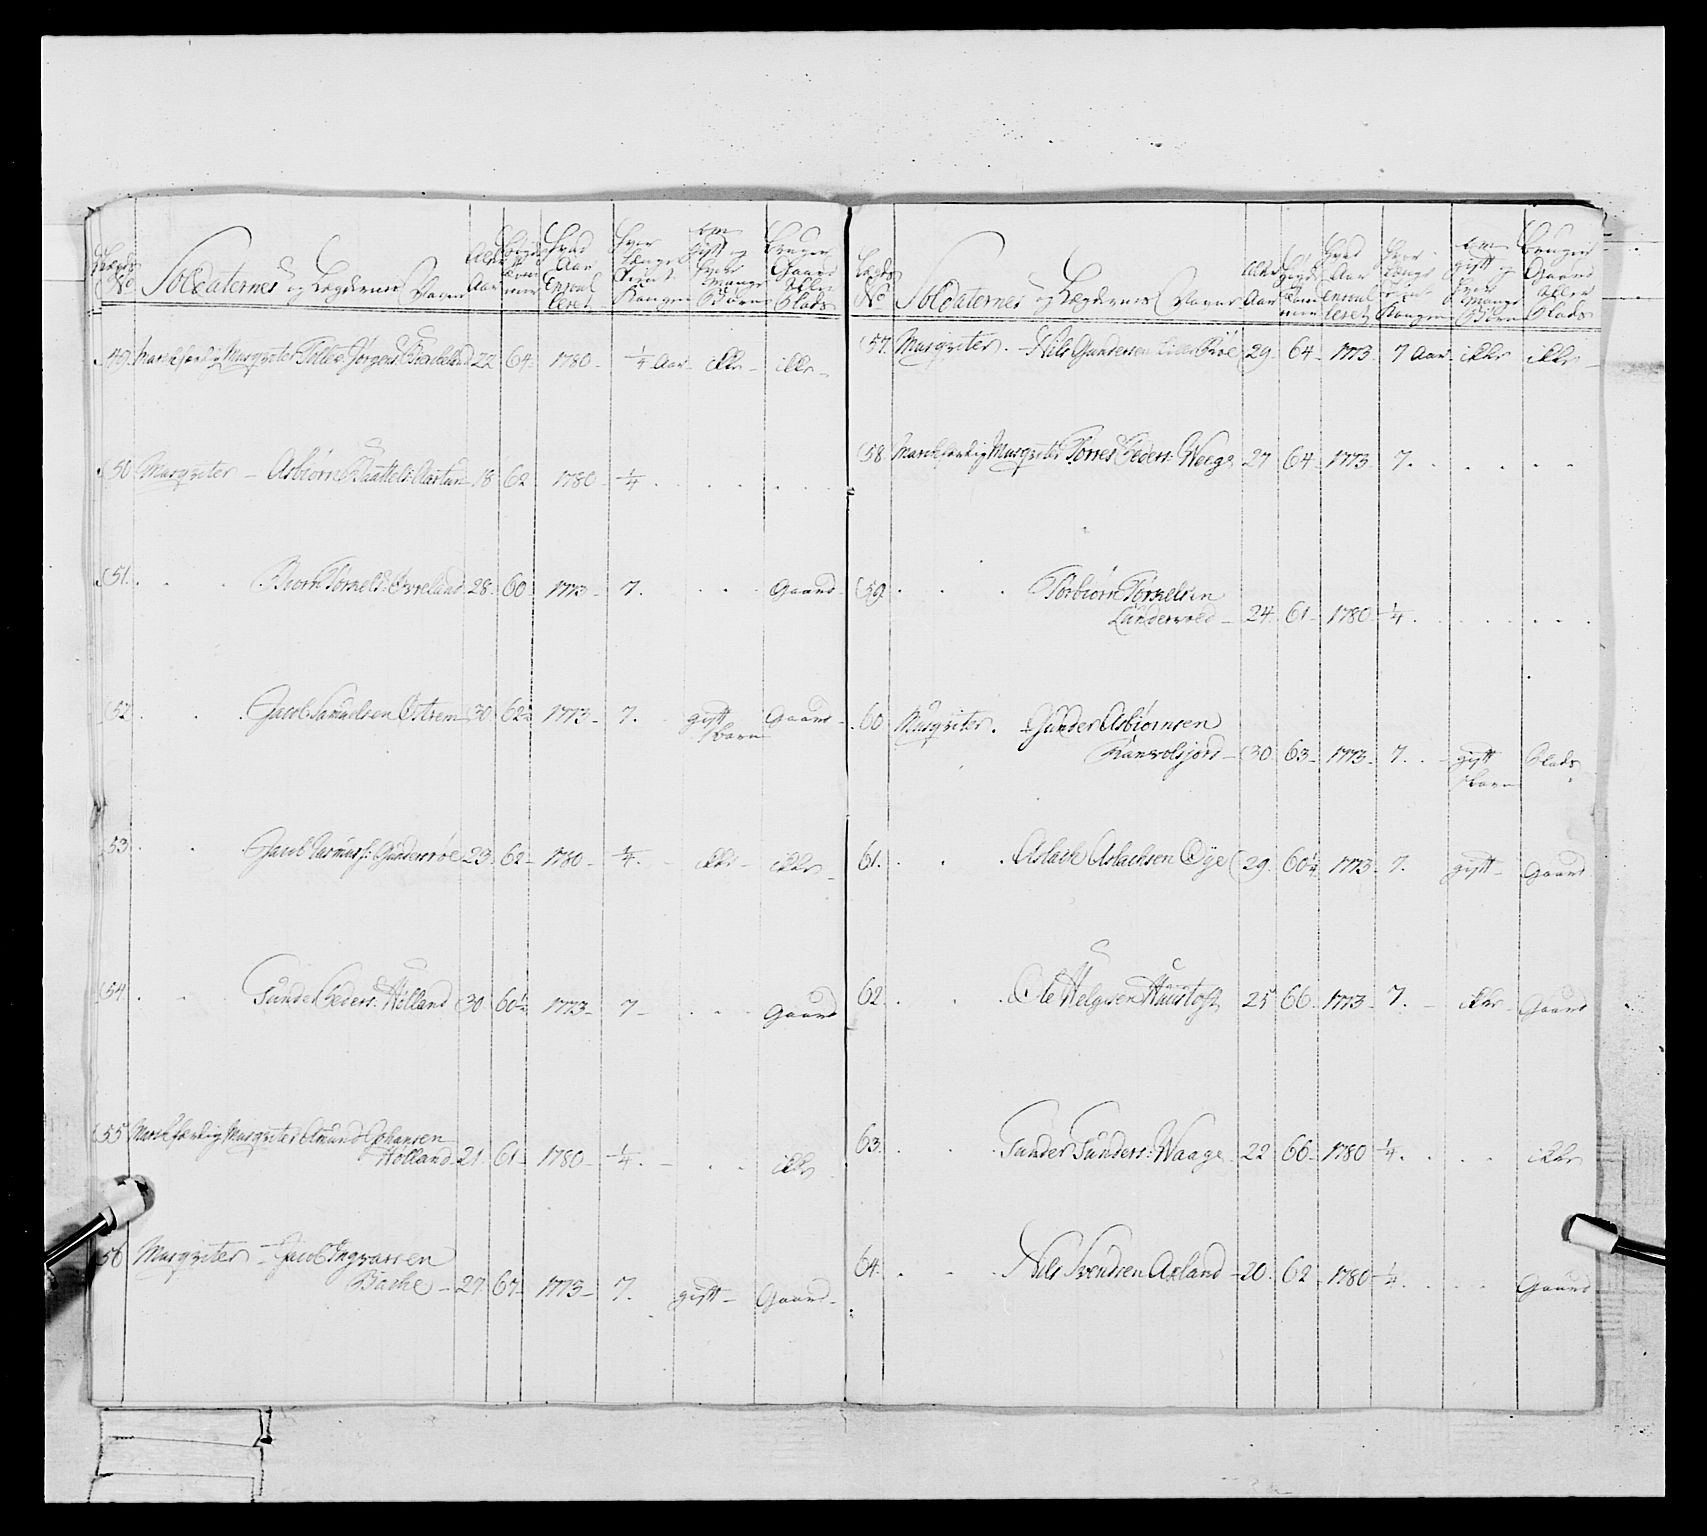 Lægds No Soldaternes og Lægdernes Navne Alder Aar Høyde Tom̄er Hvad Aar Enroulleret Hvor Længe Tient Kongen Om Gift og Hvor Mange Børn Bruger Gaard Eller Plads
49. Marchfærdig Musqveter Tollev Jørgens: 22 64 1780 ¼ Aar ikke ikke
50 Musqveter Asbiørn Aartun 18 62 1780 ¼
51. Biørn Tørkels: Øvreland 28 60 1773 7. Gaard
52 Jacob Samuelsen Østrem 30 62½ 1773 7. gift 1 barn Gaard
53 Jacob Rasmus: Gunderrøe 23 62 1780 ¼ ikke ikke
54 Gunder Peders: Hølland 30 60½ 1773 7 Gaard
55 Marchfærdig Musqveter Amund Johansen
Hølland 21 61 1780 ¼ ikke
56 Musqveter Jacob Ingvarsen
Bache 27 67 1773 7. gift Gaard
Lægds No Soldaternes og Lægdernes Navne Alder Aar Høyde Tom̄er Hvad Aar Enroulleret Hvor Længe Tient Kongen Om gift og Hvor Mange Børn Bruger Gaard Eller Plads
57. Musqveter. Nils Gundersen 29 64 1773 7 Aar ikke ikke
58 Marchfærdig Musqveter Torres Peders: Weege 27 64 1773 7.
59 Torbiørn Tørkelsen
Lundervold 24 61 1780 ¼
60 Musqveter. Gunder Asbiørnsen
30 63 1773 7. gift 1 barn Plads
61. Aslach Aslachsen Øye 29 60½ 1773 7. gift Gaard
62 Ole Helgesen Haustoft 25 66 1773 7. ikke Gaard
63. Gunder Gunders: Waage 22 60 1780 ¼ ikke
64. Nils Svendsen Axland 20 62 1780 ¼ Gaard